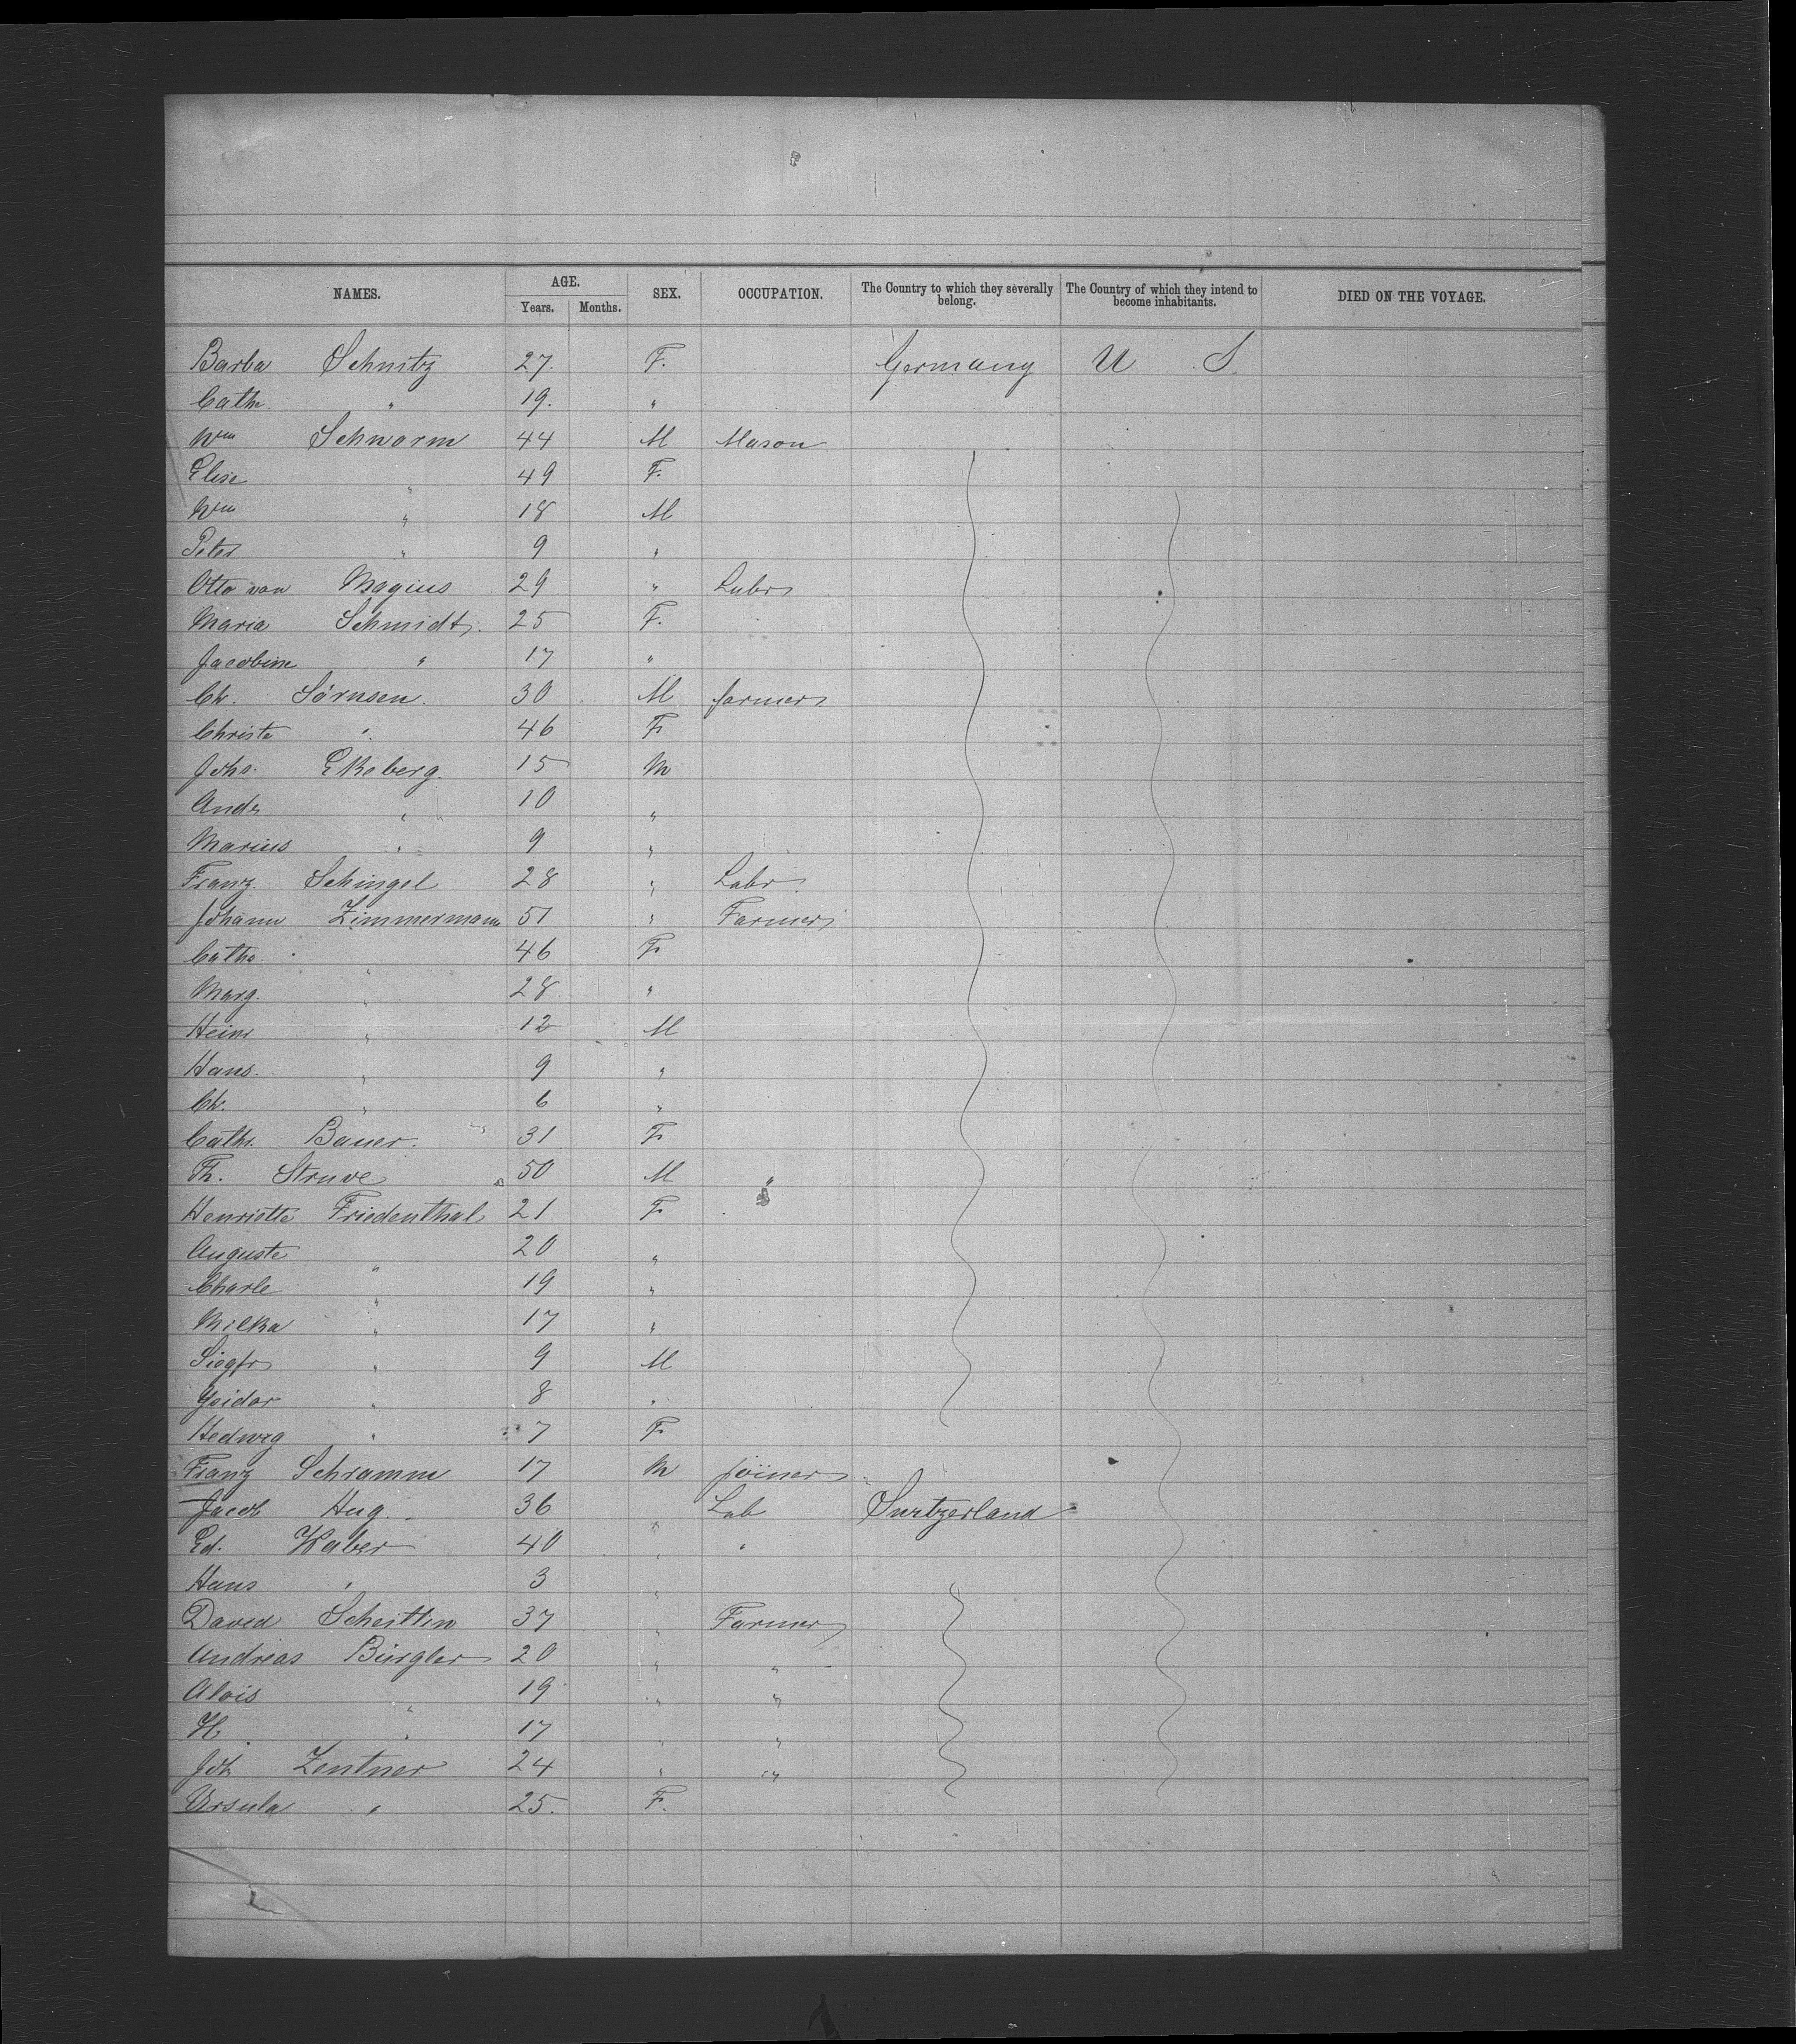 NAMES. AGE. Years. Months. SEX. OCCUPATION. The Country to which they severally belong. The Country of which they intend to become inhabitants. DIED ON THE VOYAGE.
Barba Schnitz 27. F. Germany U S.
Cath. " 19. "
Wm Schworm 44 M Mason
Elise " 49 F.
Wm " 18 M
Peter " 9 "
Otto von Magius 29 " Labr
Maria Schmidt. 25 F.
Jacobine " 17 "
Ch. Sörnsen. 30 M farmer
Christe " 46 F
Johs. Ekeberg. 15 M
Andr " 10 "
Marius " 9 "
Franz Schingel 28 " Labr.
Johann Zimmermann 51 " Farmer
Catha " 46 F
Marg. " 28 "
Heinr " 12 M
Hans. " 9 "
Ch. " 6 "
Cathr. Bauer. 31 F
Th. Struve 50 M "
Henriette Friedenthal 21 F
Auguste " 20 "
Charle " 19 "
Milka " 17 "
Siegfr " 9 M
Ysidor " 8 "
Hedwig " 7 F
Franz Schramm 17 M joiner
Jacob Hug. 36 " Lab Switzerland
Ed. Haber 40 " "
Hans " 3 "
David Scheitlin 37 " Farmer
Andreas Bürgler 20 " "
Alois " 19 " "
H. " 17 " "
Joh Zentner 24 " "
Ursula " 25. F.